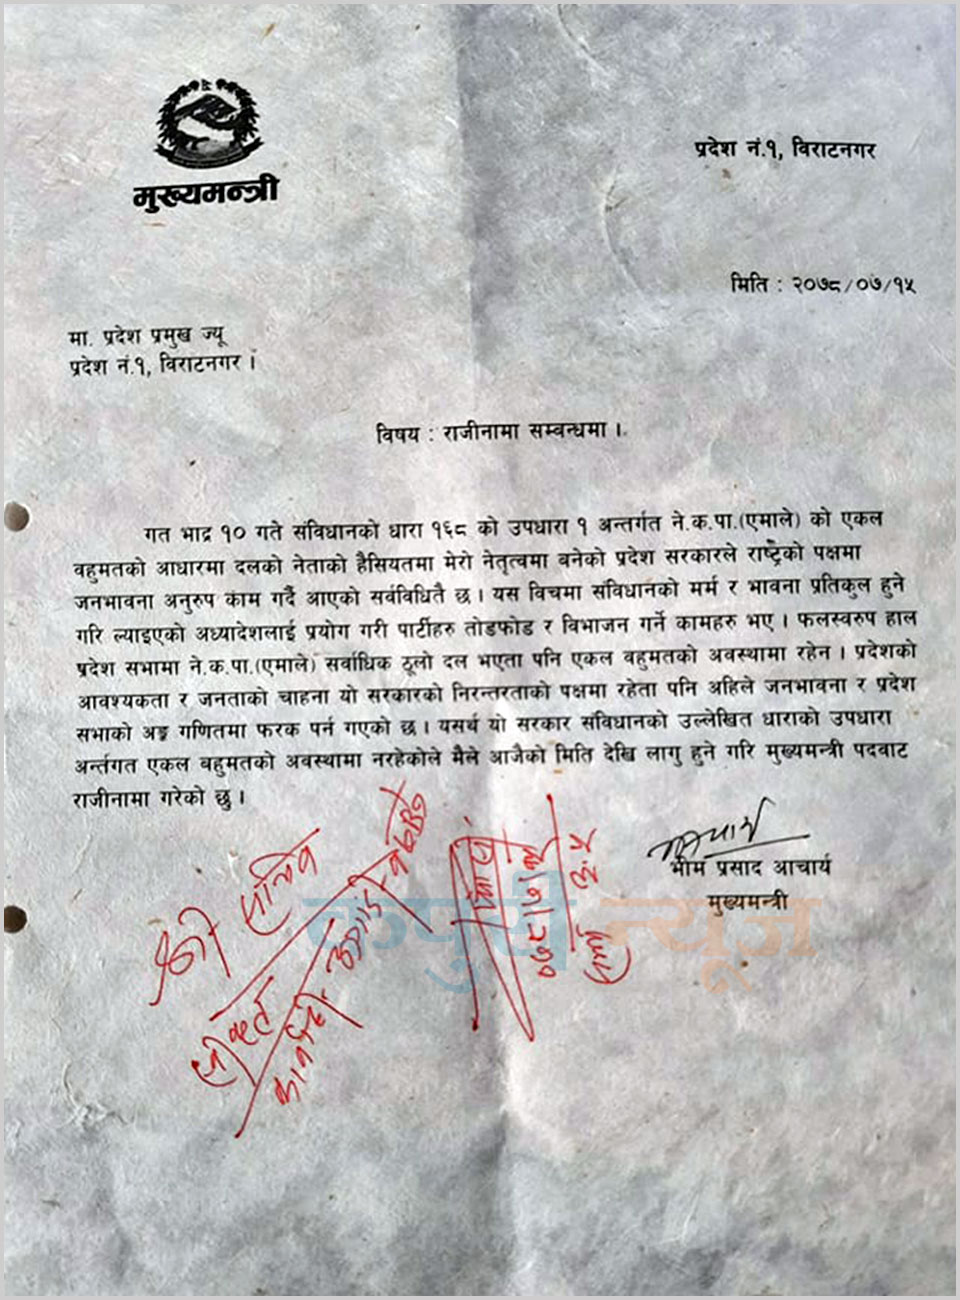 मुख्यमन्त्री
प्रदेश नं.१, विराटनगर
मिति : २०७८/०७/१५
मा. प्रदेश प्रमुख ज्यू
प्रदेश नं.१, विराटनगर ।
विषय : राजीनामा सम्बन्धमा ।
गत भाद्र १० गते संविधानको धारा १६८ को उपधारा १ अन्तर्गत ने.क.पा.(एमाले) को एकल
वहुमतको आधारमा दलको नेताको हैसियतमा मेरो नेतृत्वमा बनेको प्रदेश सरकारले राष्ट्रको पक्षमा
जनभावना अनुरुप काम गर्दै आएको सर्वविधितै छ । यस विचमा संविधानको मर्म र भावना प्रतिकुल हुने
गरि ल्याइएको अध्यादेशलाई प्रयोग गरी पार्टीहरु तोडफोड र विभाजन गर्ने कामहरु भए । फलस्वरुप हाल
प्रदेश सभामा ने.क.पा.(एमाले) सर्वाधिक ठूलो दल भएता पनि एकल वहुमतको अवस्थामा रहेन । प्रदेशको
आवश्यकता र जनताको चाहना यो सरकारको निरन्तरताको पक्षमा रहेता पनि अहिले जनभावना र प्रदेश
सभाको अङ्क गणितमा फरक पर्न गएको छ । यसर्थ यो सरकार संविधानको उल्लेखित धाराको उपधारा
अर्न्तगत एकल बहुमतको अवस्थामा नरहेकोले मैले आजैको मिति देखि लागु हुने गरि मुख्यमन्त्री पदवाट
राजीनामा गरेको छु ।
भीम प्रसाद आचार्य
मुख्यमन्त्री
श्री सचिव
कपुरी न्यूज